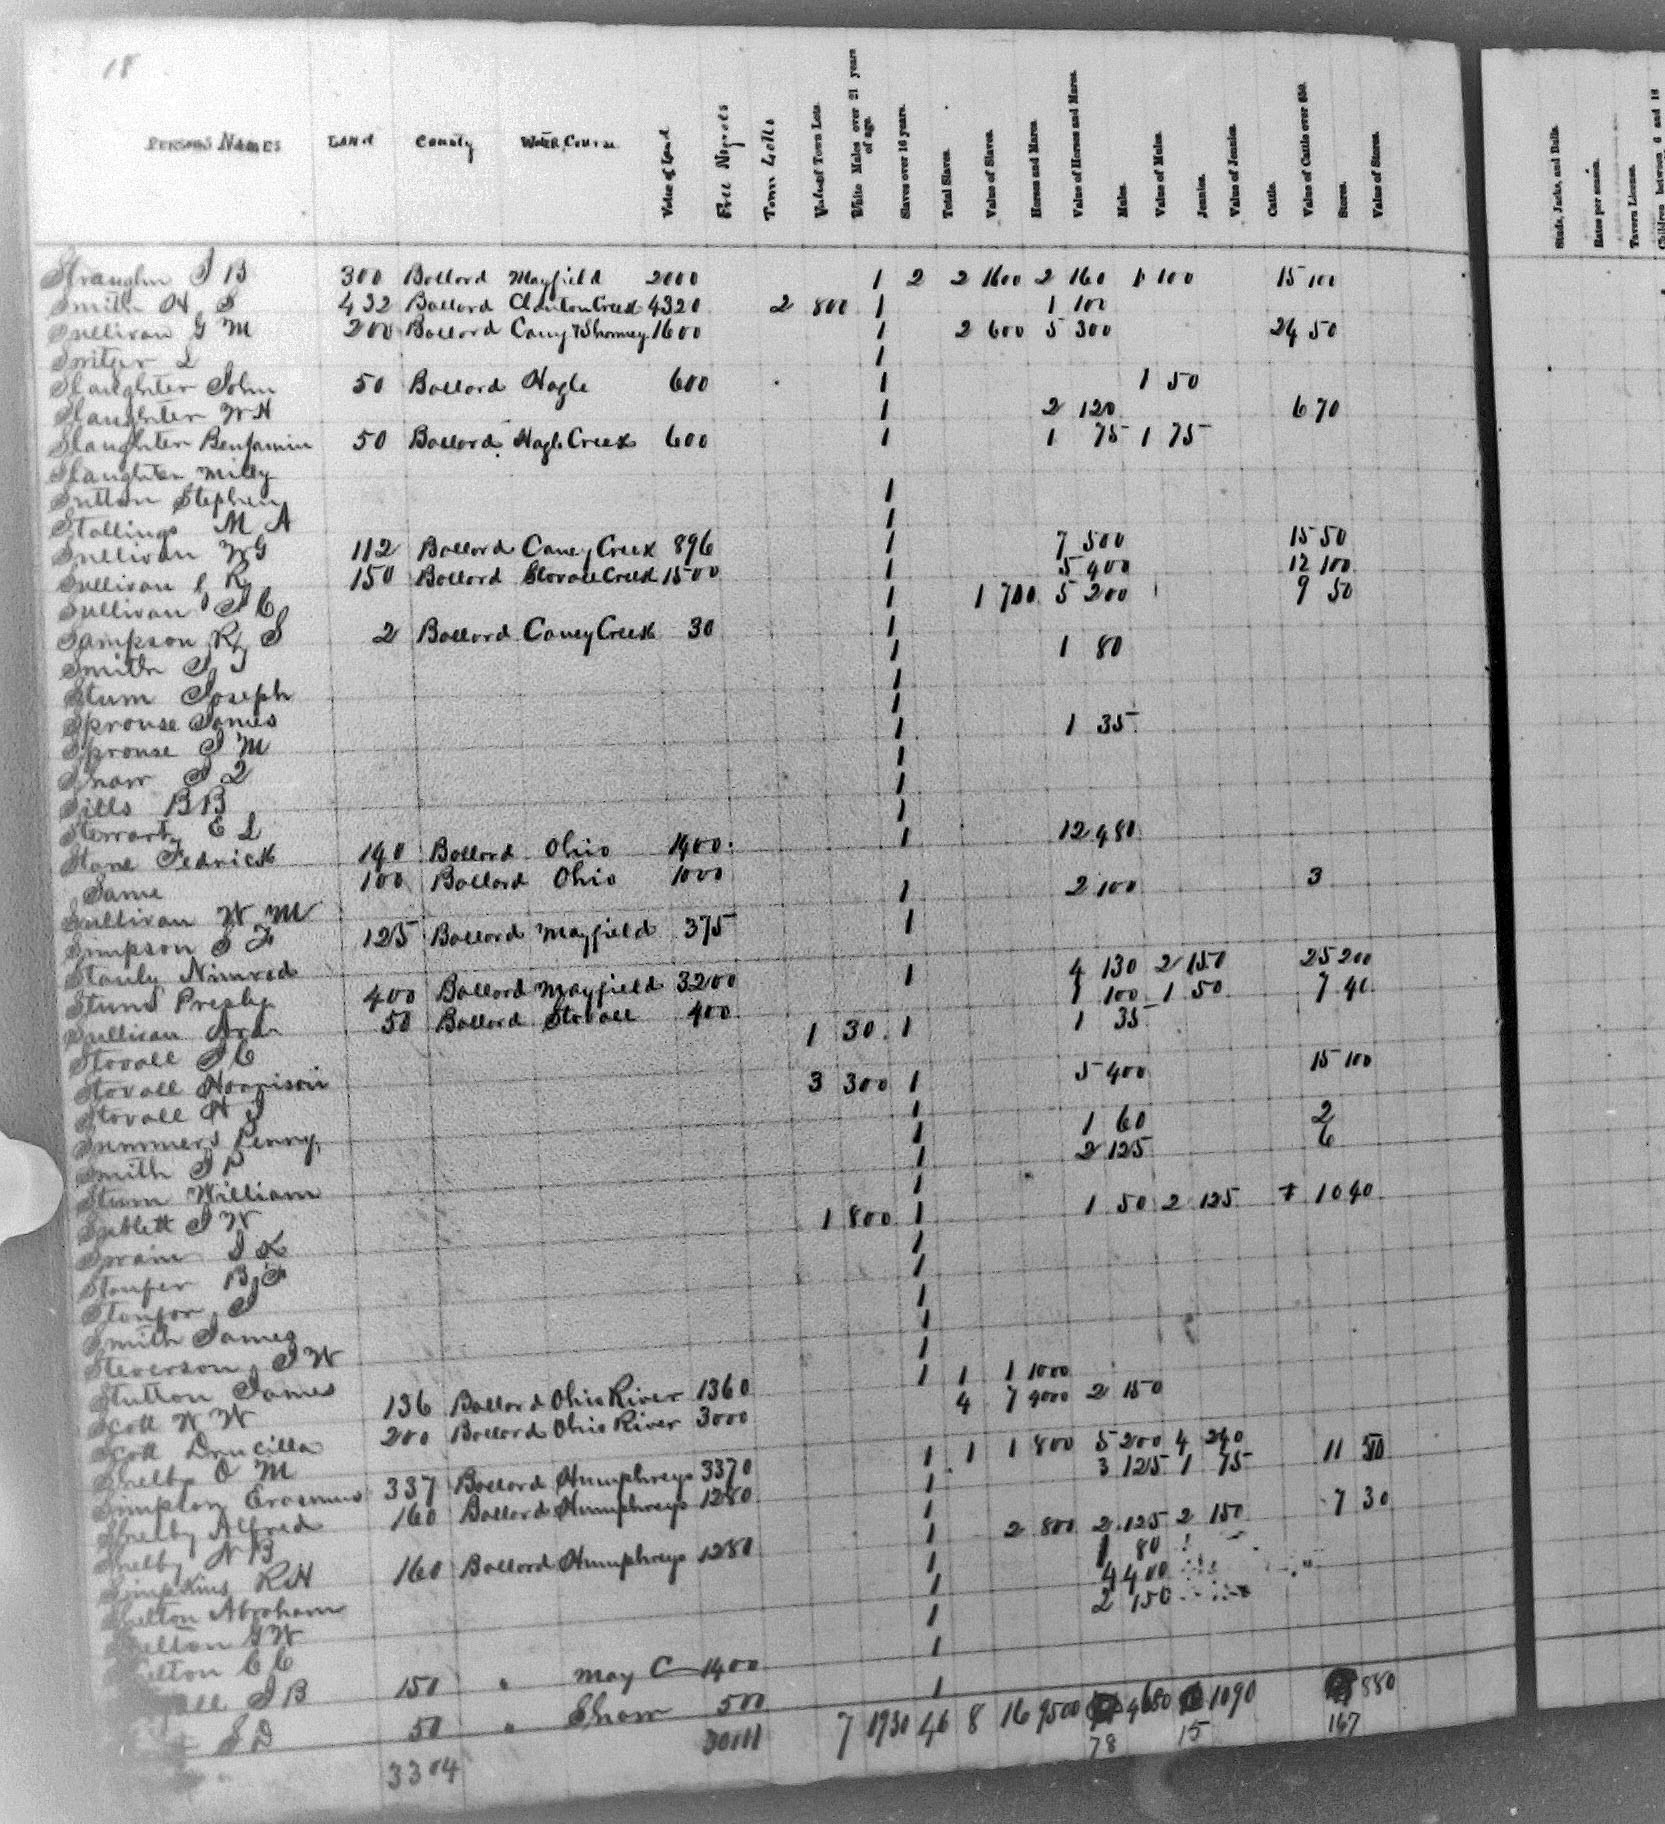 18
PERSONS NAMES LAND County Water Course Value of Land Free Negroes Town Lotts Value of Town Lots. White Males over 21 years of age. Slaves over 16 years. Total Slaves. Value of Slaves. Horses and Mares. Value of Horses and Mares. Mules. Value of Mules. Jennies. Value of Jennies. Cattle. Value of Cattle over $50. Stores. Value of Stores.
Studs, Jacks, and Bulls. Rates per season. Tavern License. Children between 6 and 18
Straughn J B 300 Ballard Mayfield 2000 1 2 2 1600 2 160 1 100 15 100
Smith H S 432 Ballard Clanton Creek 4320 2 800 1 1 100
Sullivan G M 200 Ballard Caney & 1600 1 2 600 5 300 24 50
L 1
Slaughter John 50 Ballard Hagle 600 1 1 50
Slaughter W H 1 2 120 6 70
Slaughter Benjamin 50 Ballard Hagle Creek 600 1 1 75 1 75
Slaughter Milly
Sutton Stephen 1
Stallings M A 1
Sullivan W G 112 Ballard Caney Creek 896 1 7 500 15 50
Sullivan R 150 Ballard Stovall Creek 1500 1 5 400 12 100
Sullivan J C 1 1 700 5 200 9 50
Sampson R S 2 Ballard Caney Creek 30 1
Smith J J 1 1 80
Stum Joseph 1
Sprouse James 1
Sprouse J M 1 1 35
Shaw J L 1
Sills B B 1
Stewart E L 1
Stone Fedrick 140 Ballard Ohio 1400 1 12 480
Same 100 Ballard Ohio 1000
Sullivan W M 1 2 100 3
Simpson S F 125 Ballard Mayfield 375 1
Stanly Nimrod 4 130 2 150 25 200
Stund Presly 400 Ballard Mayfield 3200 1 1 100 1 50 7 40
Sullivan 50 Ballard Stovall 400 1 35
Stovall J C 1 30 1
Stovall Harrison 5 400 15 100
Stovall H J 3 300 1
Summers Penny 1 1 60 2
Smith J P 1 2 125 6
Sturn William 1
Sublett J W 1 50 2 125 7 10 40
Sprain 1 800 1
Stouper B F 1
J 1
Smith James 1
Steverson J W 1
Stutton James 1
Scott W W 136 Ballard Ohio River 1360 1 1 1 1000
Scott Drucilla 200 Ballard Ohio River 3000 4 7 4000 2 150
Shelby O M
Simpton Erasmus 337 Ballard Humphreys 3370 1 1 1 800 5 200 4 240 11 50
Shelby Alfred 160 Ballard Humphreys 1280 1 3 125 1 75
Shelby N B 1 7 30
Simpkins R H 160 Ballard Humphreys 1280 1 2 800 2 125 2 150
Shelton Abraham 1 1 80
Shelton G W 1 4 400
Shelton C C 1 2 150
J B 150 " May C 1400 1
S D 50 " Shaw 500 1
3304 30111 7 1930 46 8 16 9500 4680 1090 880
78 15 167